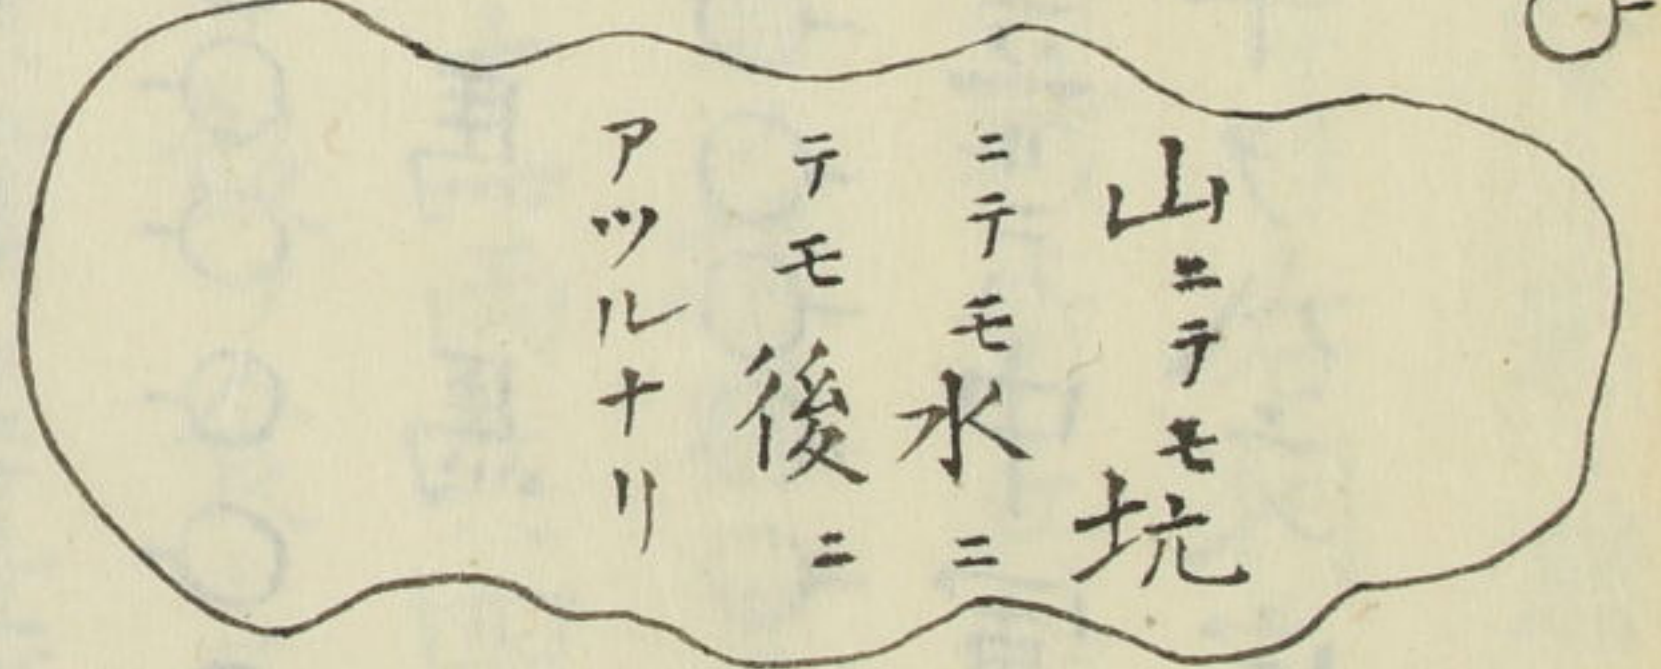 山ニテモ坑
ニテモ水ニ
テモ後ニ
アツルナリ